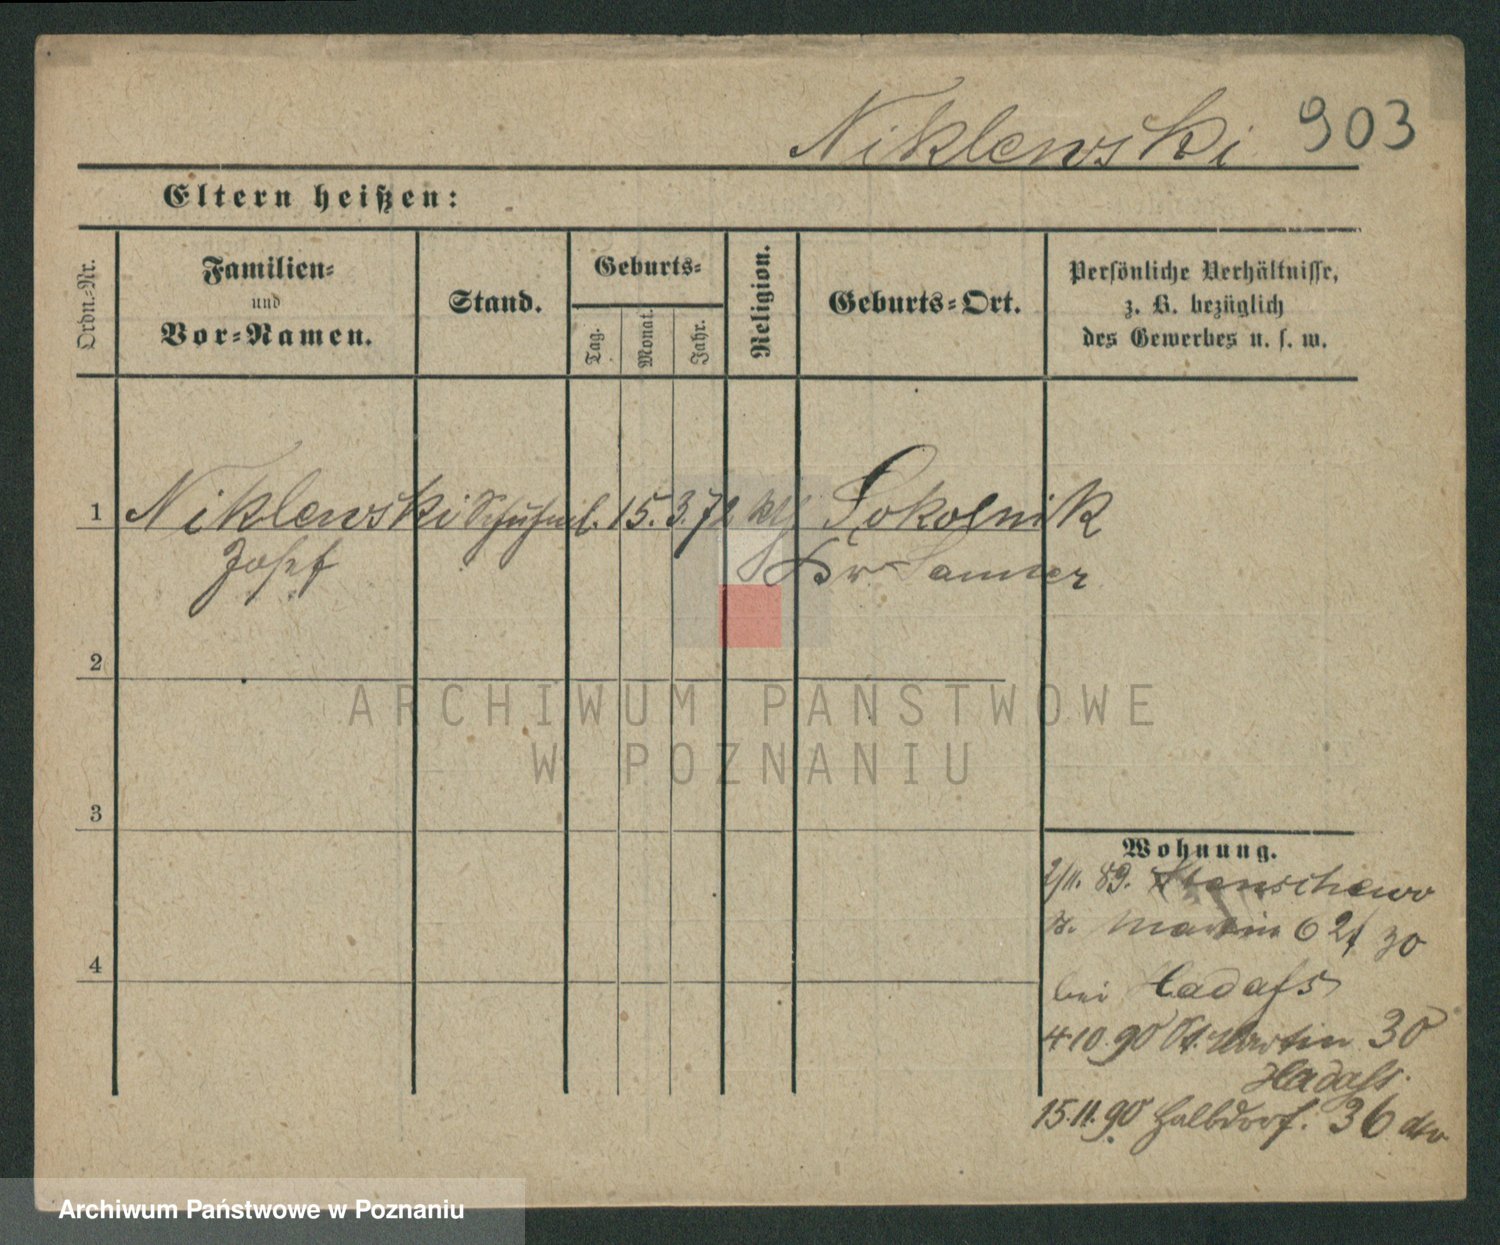 Niklewski 903
Eltern heißen:
Ordn.-Nr.
Familien-
und
Vor-Namen.
Stand.
Geburts-
Tag.
Monat.
Jahr.
Religion.
Geburts-Ort.
Persönliche Verhältnisse,
z. B. bezüglich
des Gewerbes u. s. w.
1 Niklewski Schuhml. 15. 3. 72 kth Sokolnik
Josef Kr Samter
2
3
4
ARCHIWUM PAŃSTWOWE
W POZNANIU
Wohnung.
2/11. 89. Stenschewo
St. Martin 62
bei Hadass
4 10 90 St. Martin 30
Hadass.
15.11.90 Halbdorf. 36 dto
Archiwum Państwowe w Poznaniu